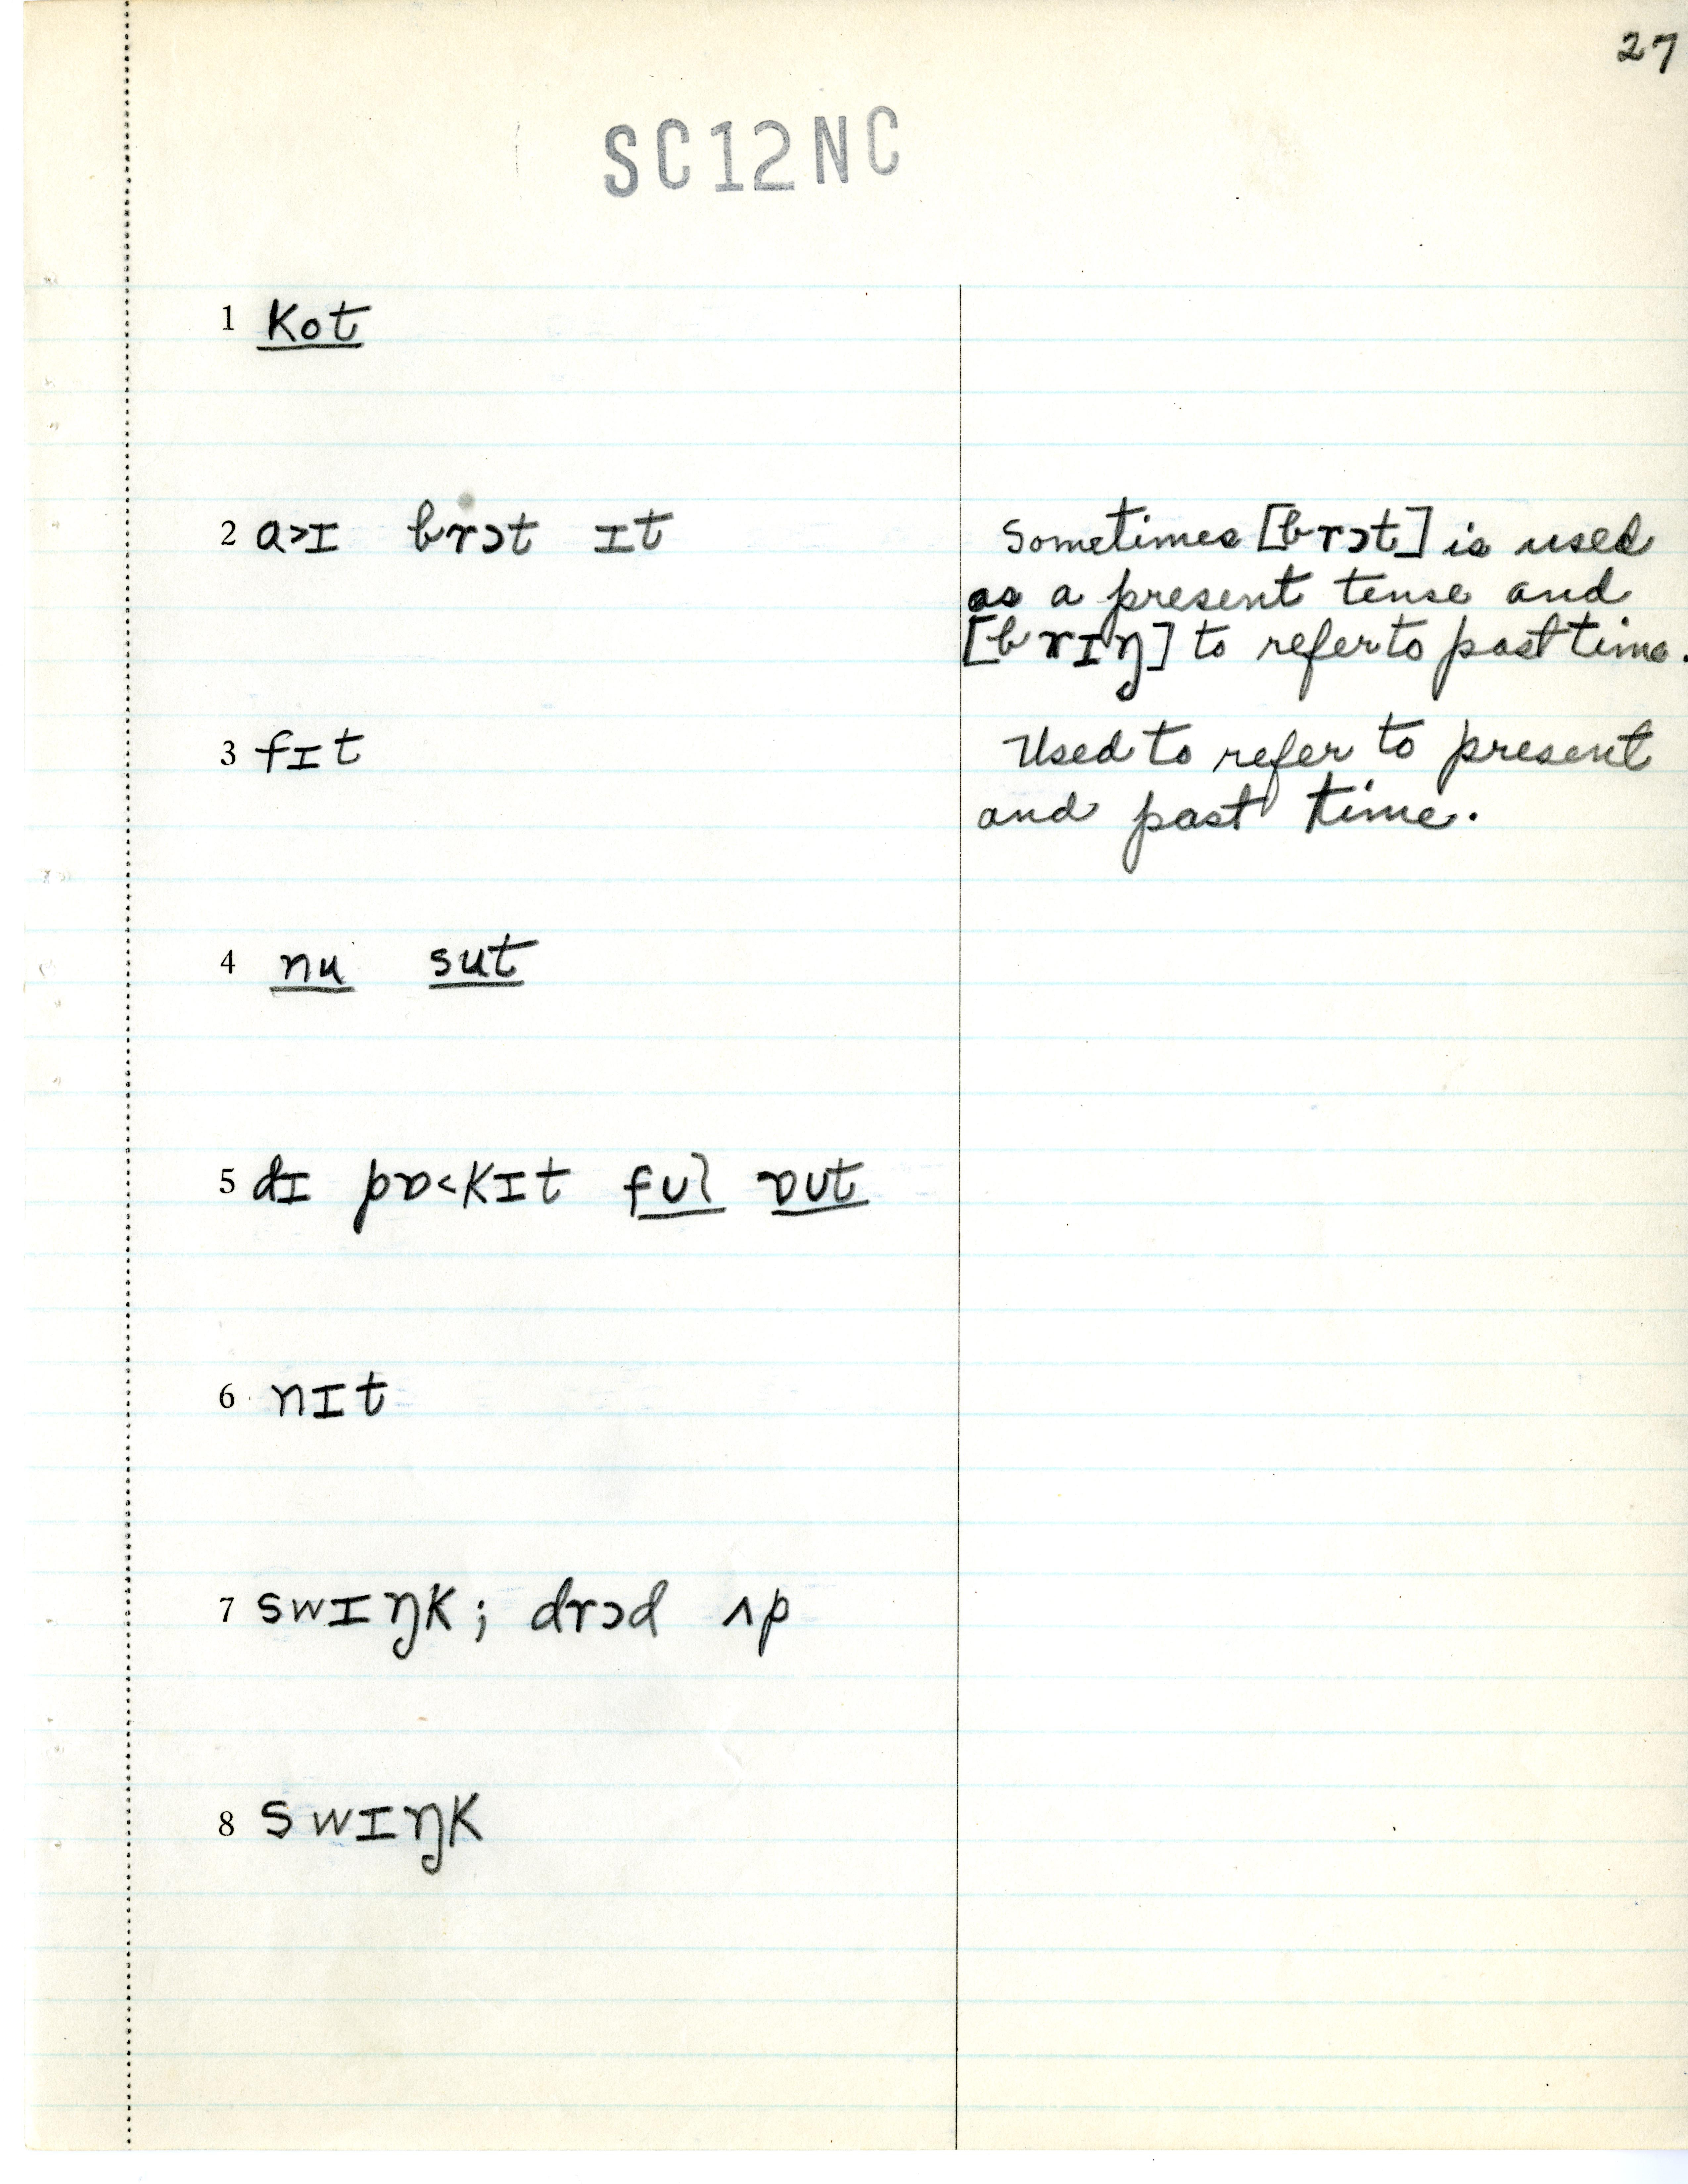 27
SC12NC
1 kot
2 a>ɪ brɔt ɪt
Sometimes [brɔt] is used
as a present tense and
[brɪŋ] to refer to past time.
3 fɪt
Used to refer to present
and past time.
4 nu sut
5 dɪ pɒ<kɪt ful ɒut
6 nɪt
7 swɪŋk; drɔd ʌp
8 swɪŋk